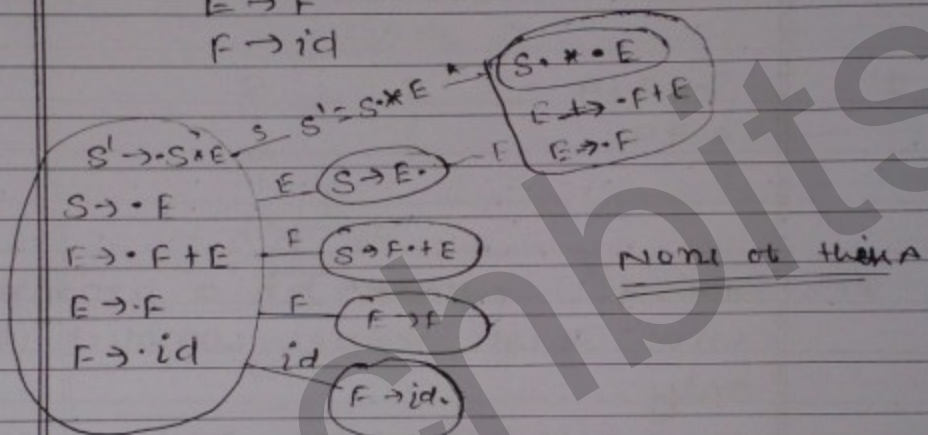 E → F
F → id
S' → ·S*E
S → ·E
F → ·F + E
E → ·F
F → ·id
S
S' = S·*E
*
S · * · E
E → ·F + E
E → ·F
E
S → E·
E
F
S → F· + E
F
F → F
id
F → id.
None of